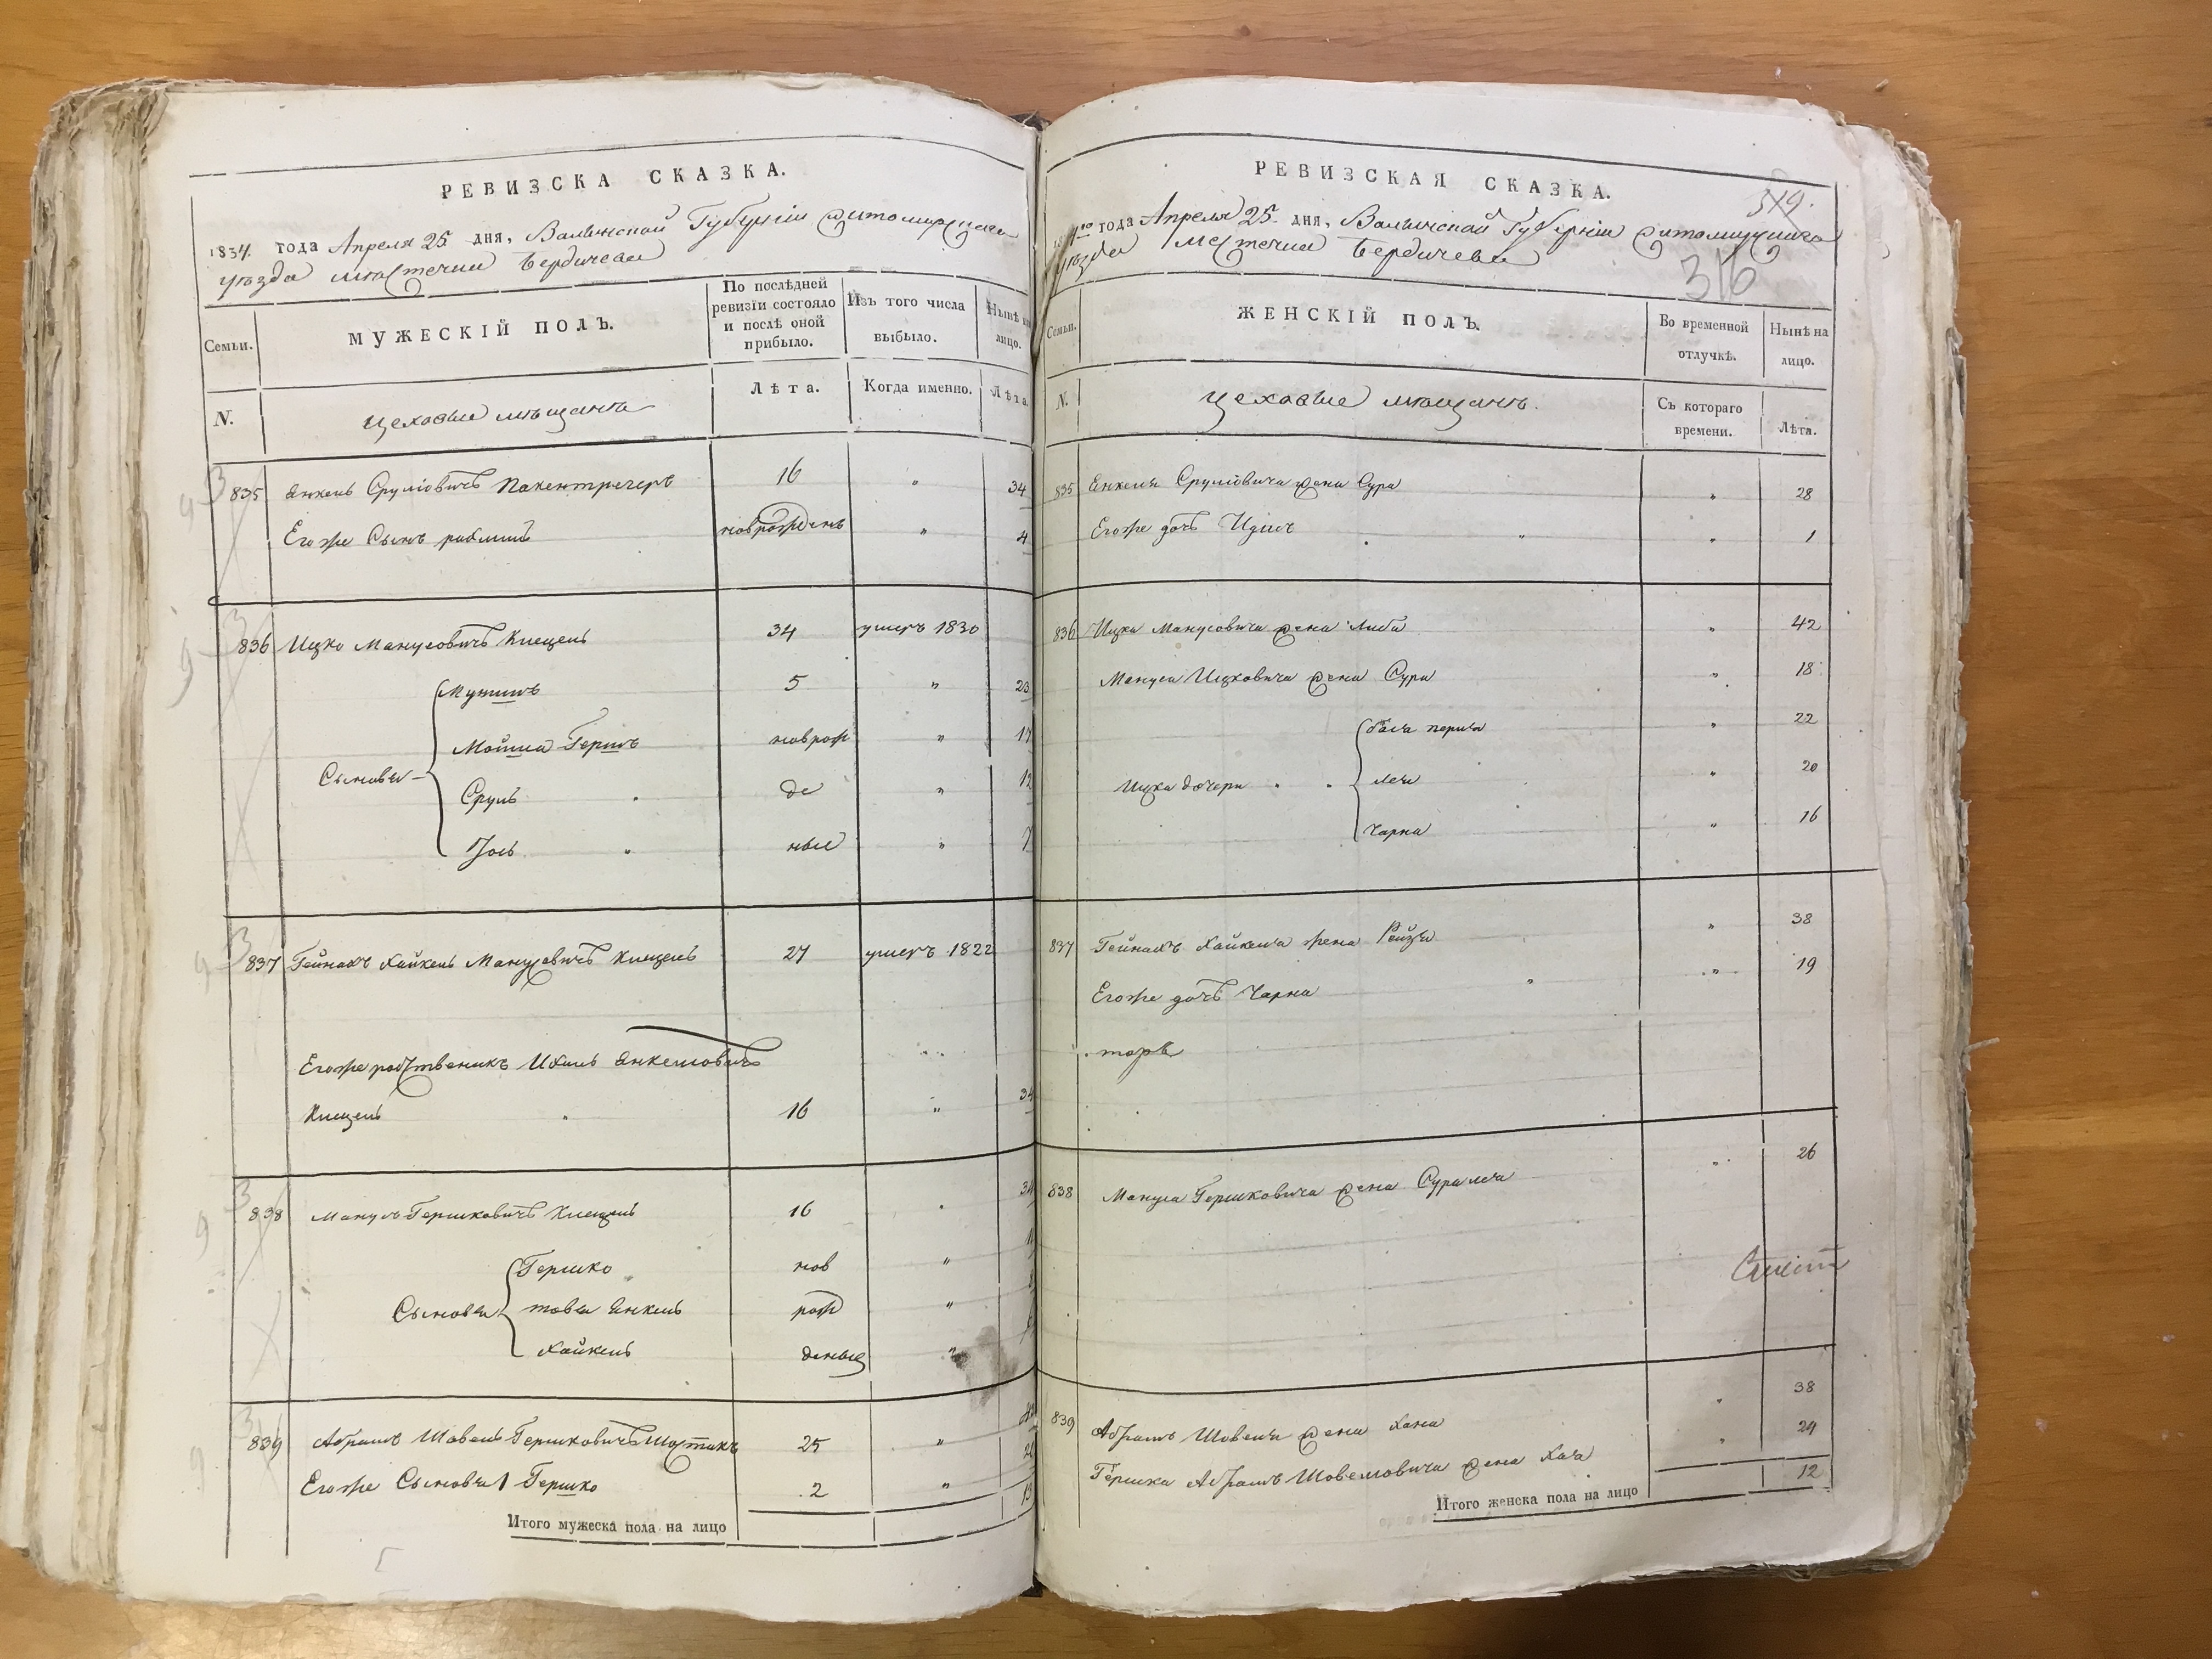 РЕВИЗСКА СКАЗКА.
1834. года Апреля 25 дня, Волынской Губерніи Житомирскаго
уѣзда мѣстечки Бердичева
Семьи.
МУЖЕСКІЙ ПОЛЪ.
По послѣдней ревизіи состояло и послѣ оной прибыло.
Изъ того числа выбыло.
Нынѣ на лицо.
N.
Цеховые мѣщане
Лѣта.
Когда именно.
Лѣта.
835 Янкель Сруліовичъ 16 " 34
Егоже Сынъ новорожденъ " 4
836 Ицко Манусовичъ Клецель 34 умеръ 1830
5 " 23
Мойша Гершъ новрож " 17
Сыновья
Сруль " де " 12
Іось " ные " 7
837 Гейнахъ Хайкель Манусовичъ Клецель 27 умеръ 1822
Егоже родственикъ Ихиль Янкелювичъ
Клецель " 16 " 34
838 Манусъ Гершковичъ Клецель 16 " 34
Гершко нов "
Сыновья товія Янкель рож "
Хайкель деныя "
839 Абрамъ Шовель Гершковичъ 25 "
Егоже Сыновья 1 Гершко 2 "
Итого мужеска пола на лицо 13
РЕВИЗСКАЯ СКАЗКА.
319.
года Апреля 25 дня, Волынской Губерніи Житомирскаго
уѣзда Местечки Бердичева
316
Семьи.
ЖЕНСКІЙ ПОЛЪ.
Во временной отлучкѣ.
Нынѣ на лицо.
N.
Цеховые мѣщане.
Съ котораго времени.
Лѣта.
835 Енкеля Сруліовича жена Сура " 28
Егоже дочь " " 1
836 Ицка Манусовича жена Либа " 42
Мануса Ицковича жена Сура " 18
бася перля " 22
Ицка дочери " " лея " 20
Чарна " 16
837 Гейнахъ Хайкеля жена Рейзя " 38
Егоже дочь Чарна " " 19
838 Мануса Гершковича жена Сура лея " 26
839 Абрамъ Шовеля жена Хана " 38
Гершка Абрамъ Шовелювича жена Хая " 24
Итого женска пола на лицо 12